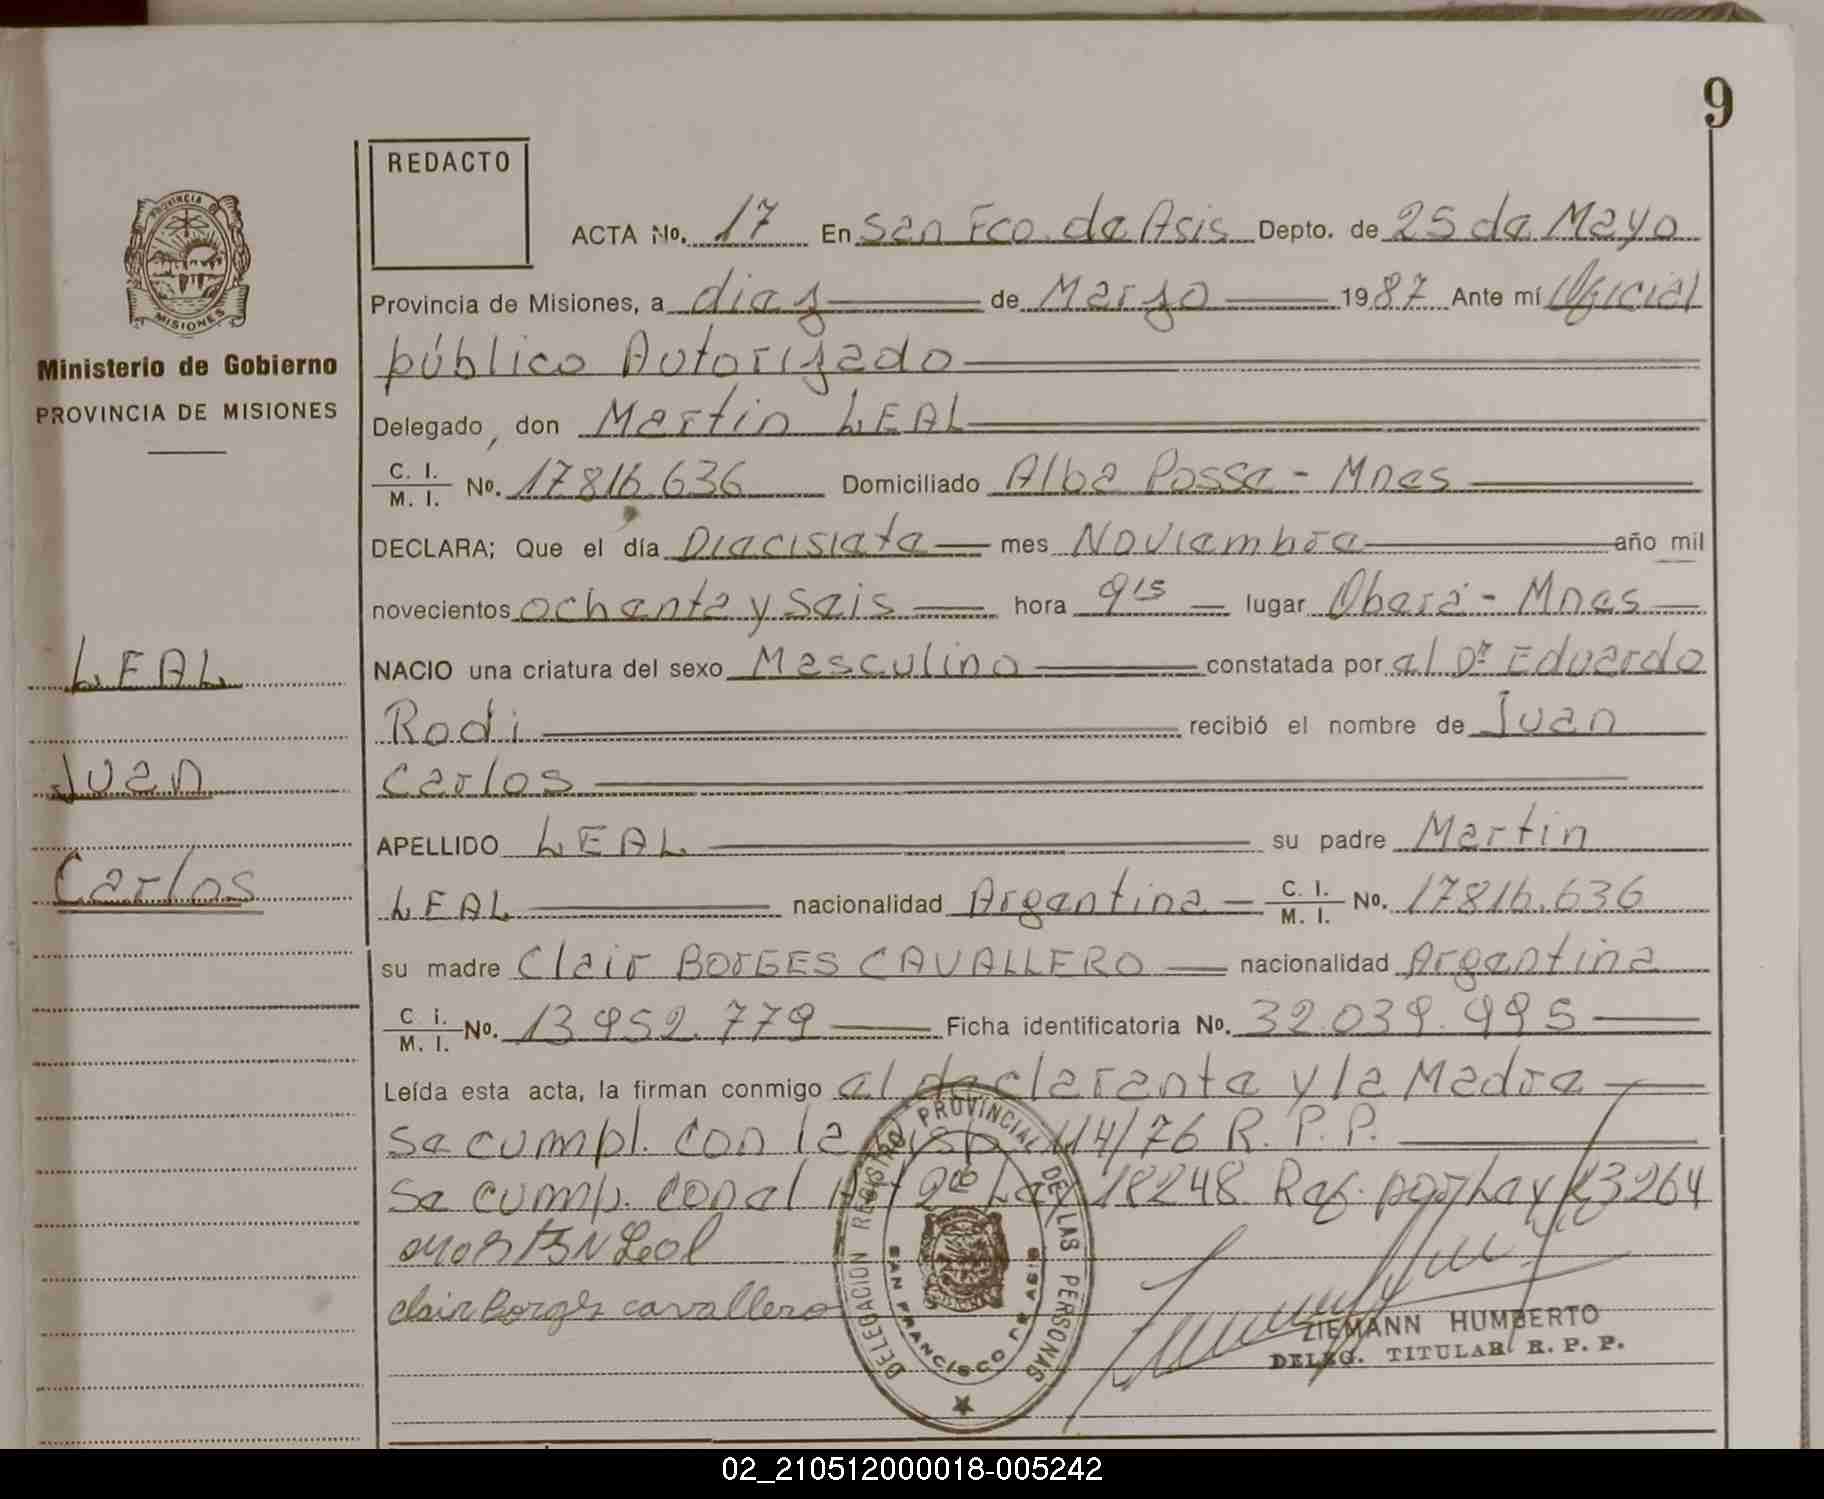 9
REDACTO
ACTA No. 17 En San Fco. de Asis Depto. de 25 de Mayo
PROVINCIA
MISIONES
Provincia de Misiones, a diez de Marzo 1987 Ante mí Oficial
Ministerio de Gobierno
público Autorizado
PROVINCIA DE MISIONES
Delegado, don Martin LEAL
C. I. M. I. No. 17816.636 Domiciliado Alba Posse - Mnes
DECLARA; Que el día Diecisiete mes Noviembre año mil
novecientos ochenta y seis hora 9 15 lugar Oberá - Mnes
LEAL
NACIO una criatura del sexo Masculino constatada por el Dr Eduardo
Rodi recibió el nombre de Juan
Juan
Carlos
APELLIDO LEAL su padre Martin
Carlos
LEAL nacionalidad Argentina C. I. M. I. No. 17816.636
su madre Clair BORGES CAVALLERO nacionalidad Argentina
C i. M. I. No. 13952.779 Ficha identificatoria No. 32.039.995
Leída esta acta, la firman conmigo el declarante y la Madre
Se cumpl. con la Disp 114/76 R. P. P.
Se cump. con el 2do Ley 18248 Ref. por Ley 23264
Leal
clair Borges cavallero
DELEGACION REGISTRO PROVINCIAL DE LAS PERSONAS
SAN FRANCISCO DE ASIS
ZIEMANN HUMBERTO
DELEG. TITULAR R. P. P.
02_210512000018-005242